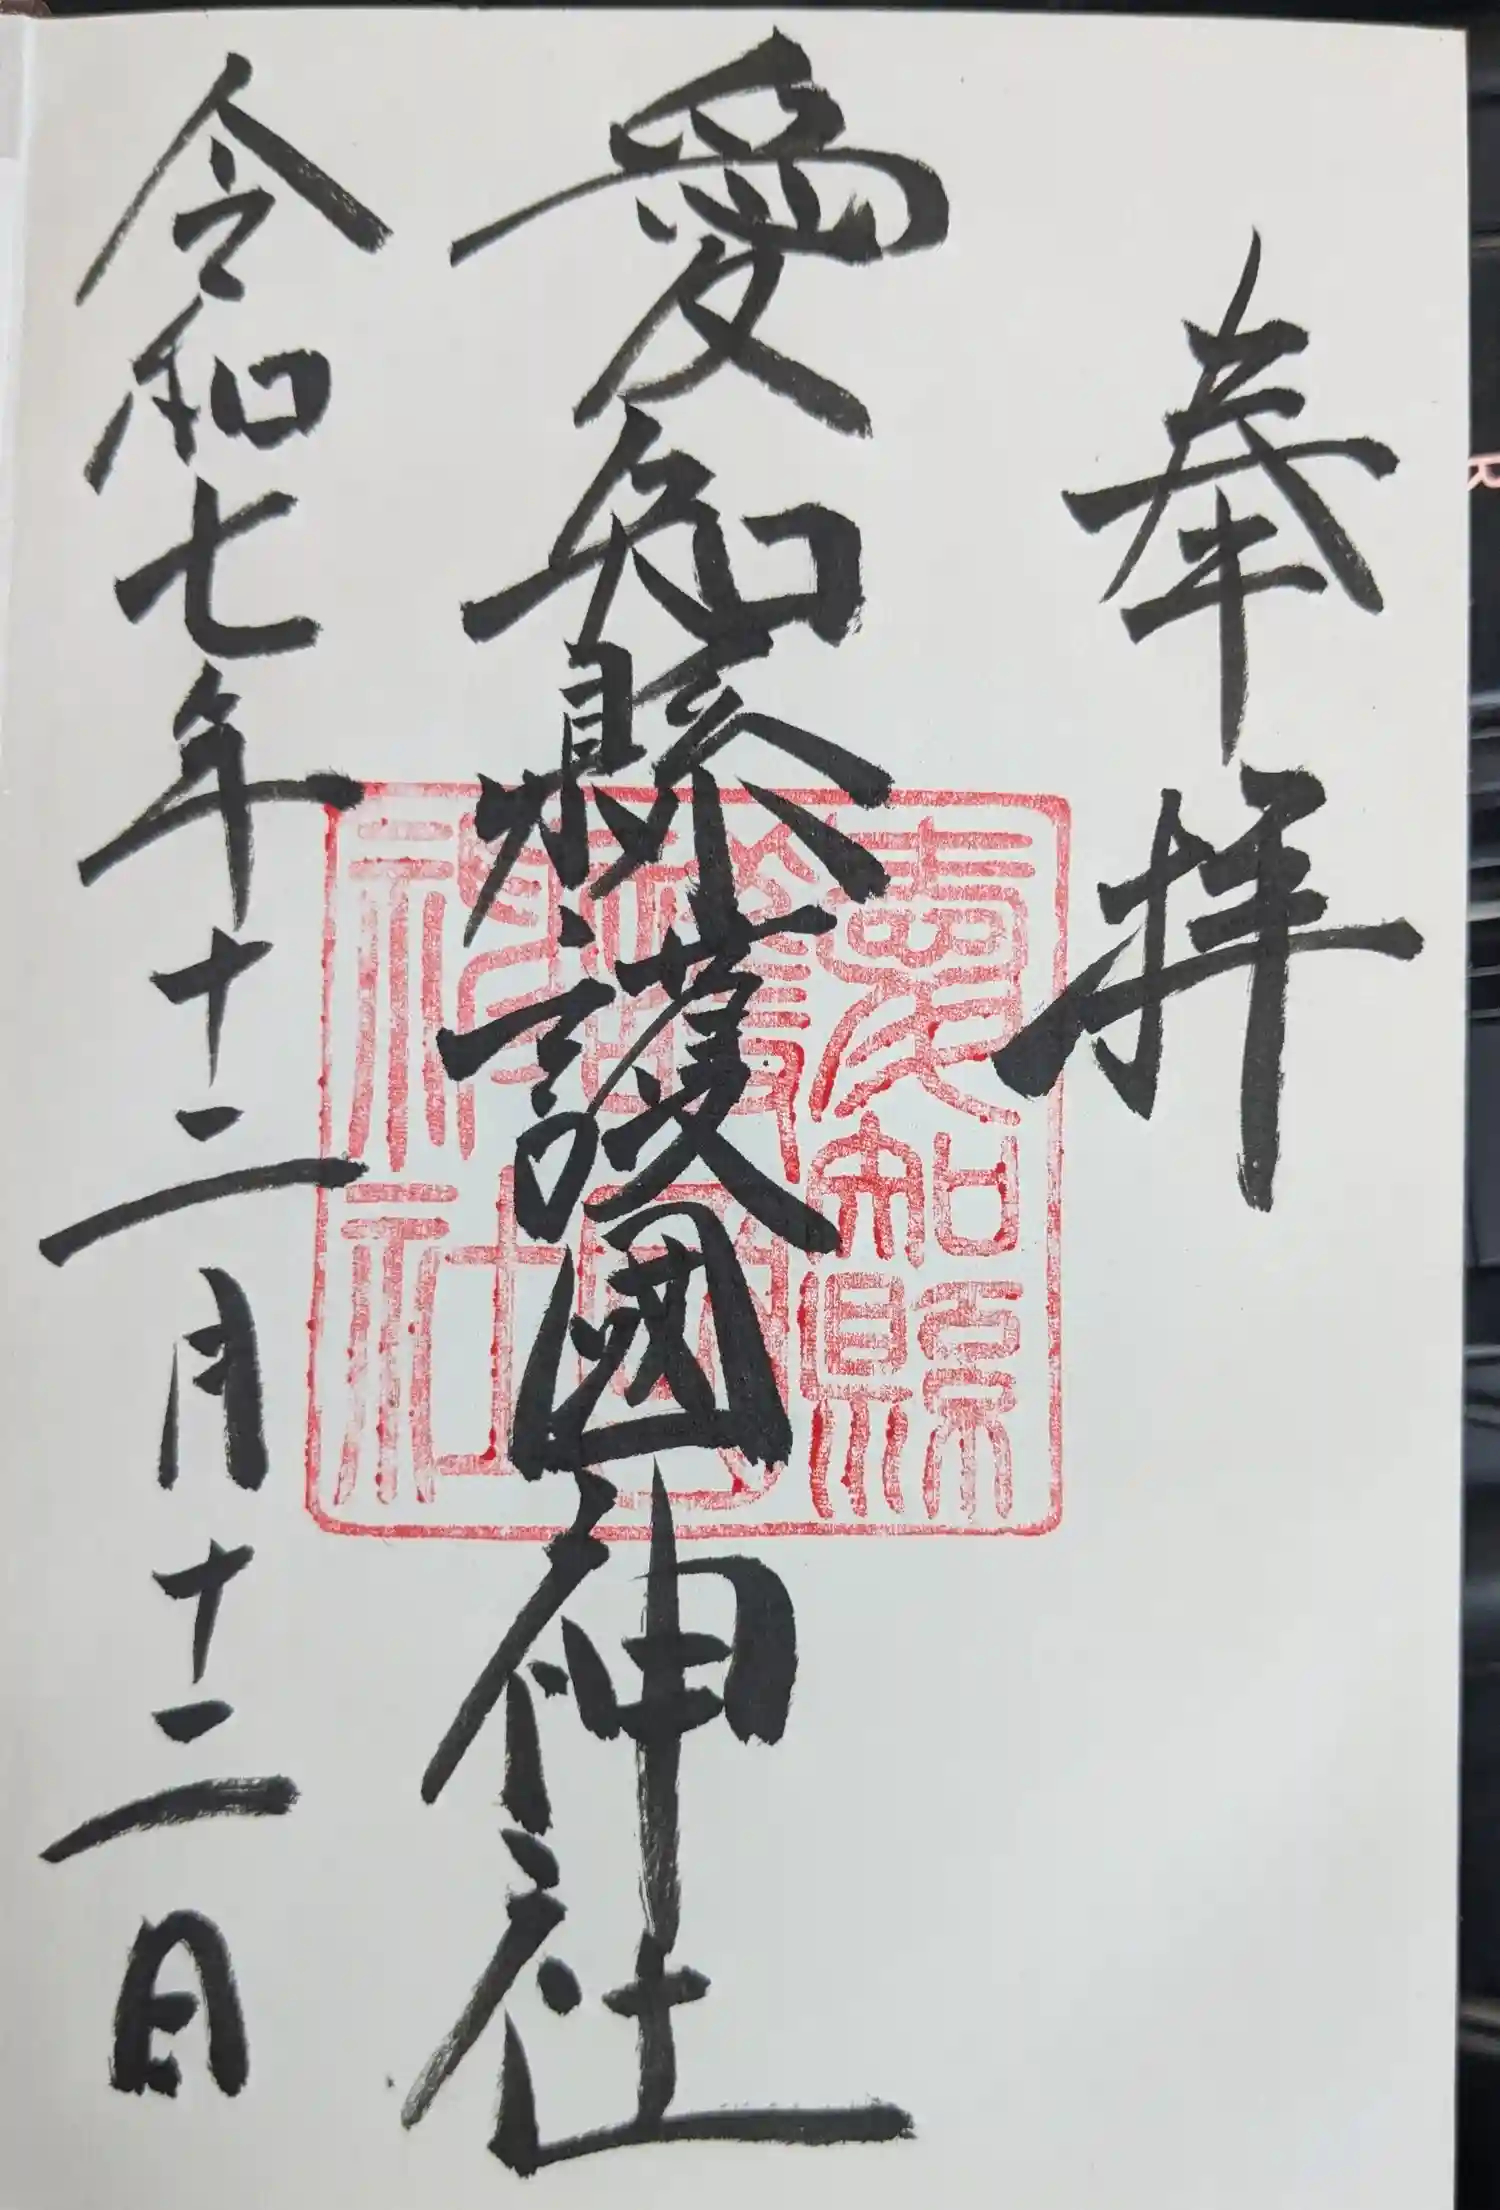 奉拝
愛知縣護國神社
愛知縣
護國
神社
令和七年十二月十二日